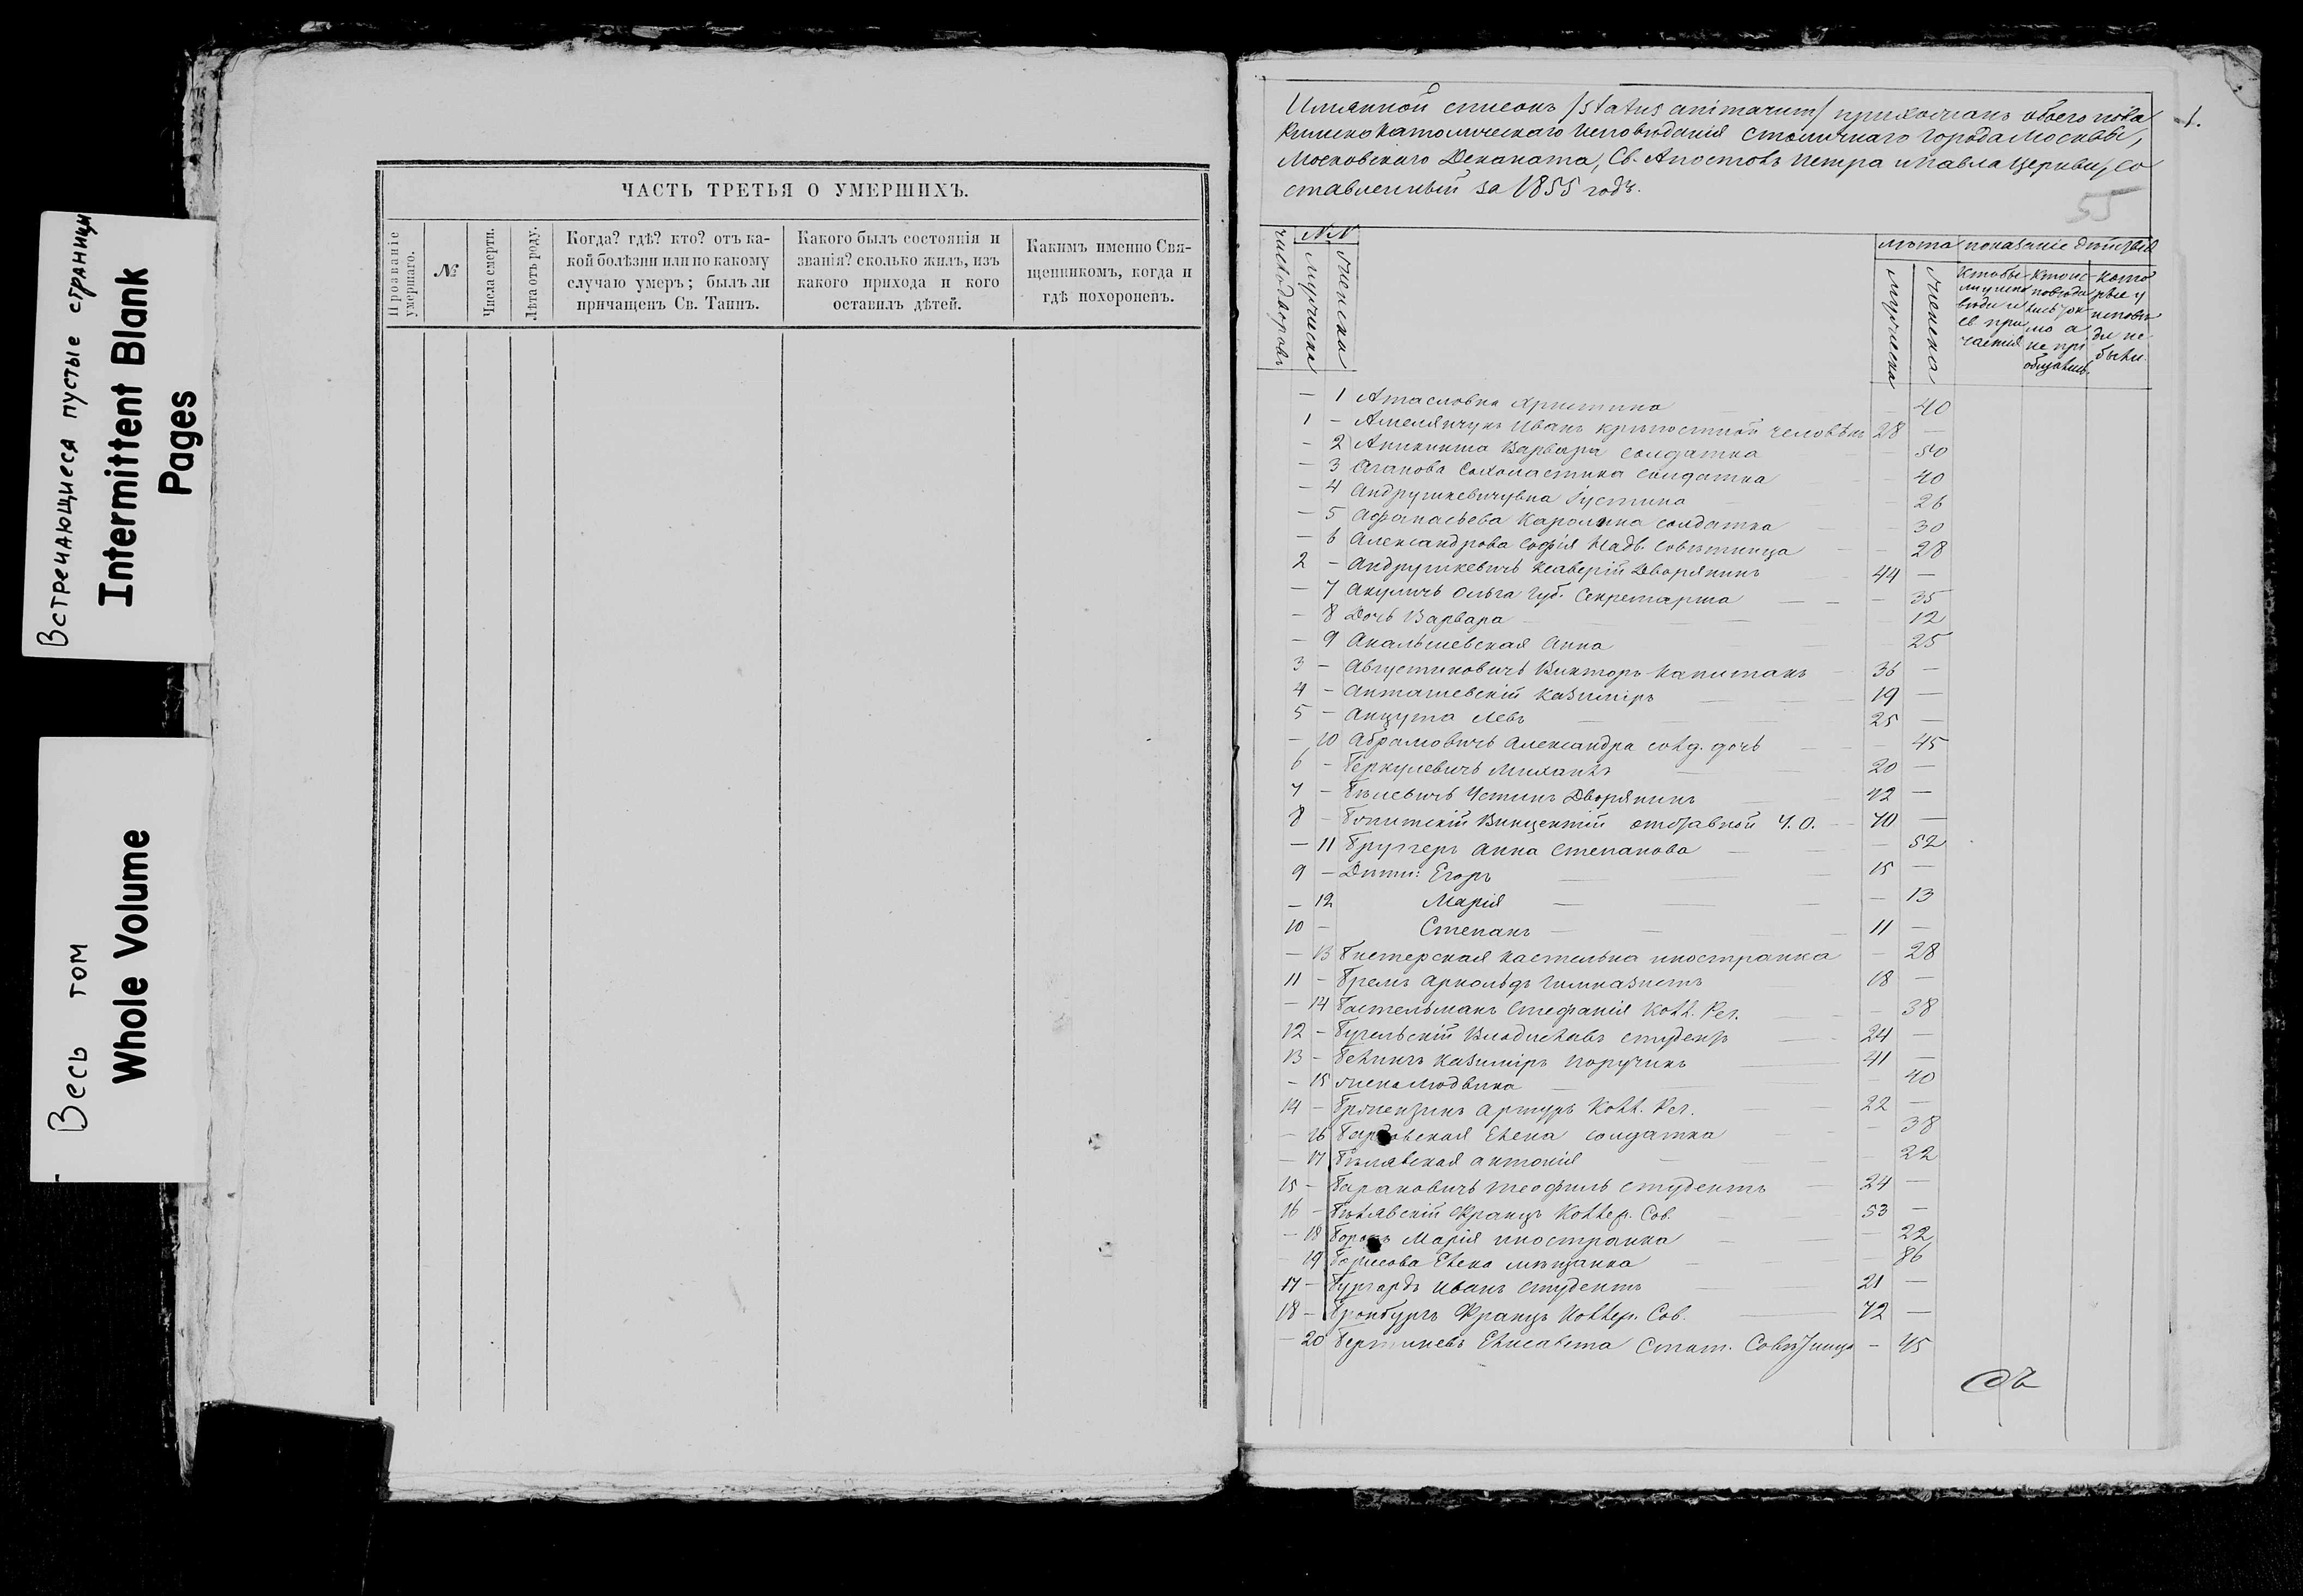 Встречающиеся пустые страницы
Intermittent Blank
Pages
Весь том
Whole Volume
ЧАСТЬ ТРЕТЬЯ О УМЕРШИХЪ.
Прозваніе
умершаго.
№
Числа смерти.
Лѣта отъ роду.
Когда? гдѣ? кто? отъ ка-
кой болѣзни или по какому
случаю умеръ; былъ ли
причащенъ Св. Таинъ.
Какого былъ состоянія и
званія? сколько жилъ, изъ
какого прихода и кого
оставилъ дѣтей.
Какимъ именно Свя-
щенникомъ, когда и
гдѣ похороненъ.
Имянной списокъ /status animarum/ прихожанъ обоего пола
Римско Католическаго Исповѣданія столичнаго города Москвы,
Московскаго Деканата, Св. Апостолъ Петра и Павла Церкви, со
ставленный за 1855 годъ.
1.
55
число дворовъ
NN
мужеска
женска
лѣта
мужеска
женска
показаніе
— 1 Христина 40
1 — Иванъ крѣпостной человѣкъ 28 —
— 2 Варвара солдатка — 50
— 3 Агапова Схоластика солдатка — 40
— 4 Андрушкевичувна Густина — 26
— 5 Афанасьева Каролина солдатка — 30
— 6 Александрова Софія Надв. Совѣтница — 28
2 — Андрушкевичъ Ксаверій Дворянинъ 44 —
— 7 Акуличъ Ольга Губ. Секретарша — 35
— 8 Дочь Варвара 12
— 9 Анна 25
3 — Августиновичъ Викторъ Капитанъ 36 —
4 — Анташевскій Казиміръ 19 —
5 — Анцута Левъ 25 —
— 10 Абрамовичъ Александра солд. дочь — 45
6 — Беркулевичъ Михаилъ 20 —
7 — Дворянинъ 42 —
8 — Викцентій отставной Ч.О. 70 —
— 11 Бруггеръ Анна Степанова — 52
9 — Дѣти: Егоръ 15 —
— 12 Марія — 13
10 — Степанъ 11 —
— 13 иностранка — 28
11 — Бремъ Арнольдъ Гимназистъ 18 —
— 14 Бостельманъ Стефанія Колл. Рег. — 38
12 — Владиславъ студентъ 24 —
13 — Казиміръ Поручикъ 41 —
— 15 жена Людвика — 40
14 — Артуръ Колл. Рег. 22 —
— 16 Елена солдатка — 38
— 17 Бѣлявская Антонія — 22
15 — Барановичъ Теофиль студентъ 24 —
16 — Бѣлявскій Францъ Коллеж. Сов. 53 —
— 18 Марія иностранка — 22
— 19 Борисова Елена мѣщанка — 86
17 — Бургардъ Иванъ студентъ 21 —
18 — Бронбургъ Францъ Коллеж. Сов. 72 —
— 20 Елисавета Стат. Совѣтница — 45